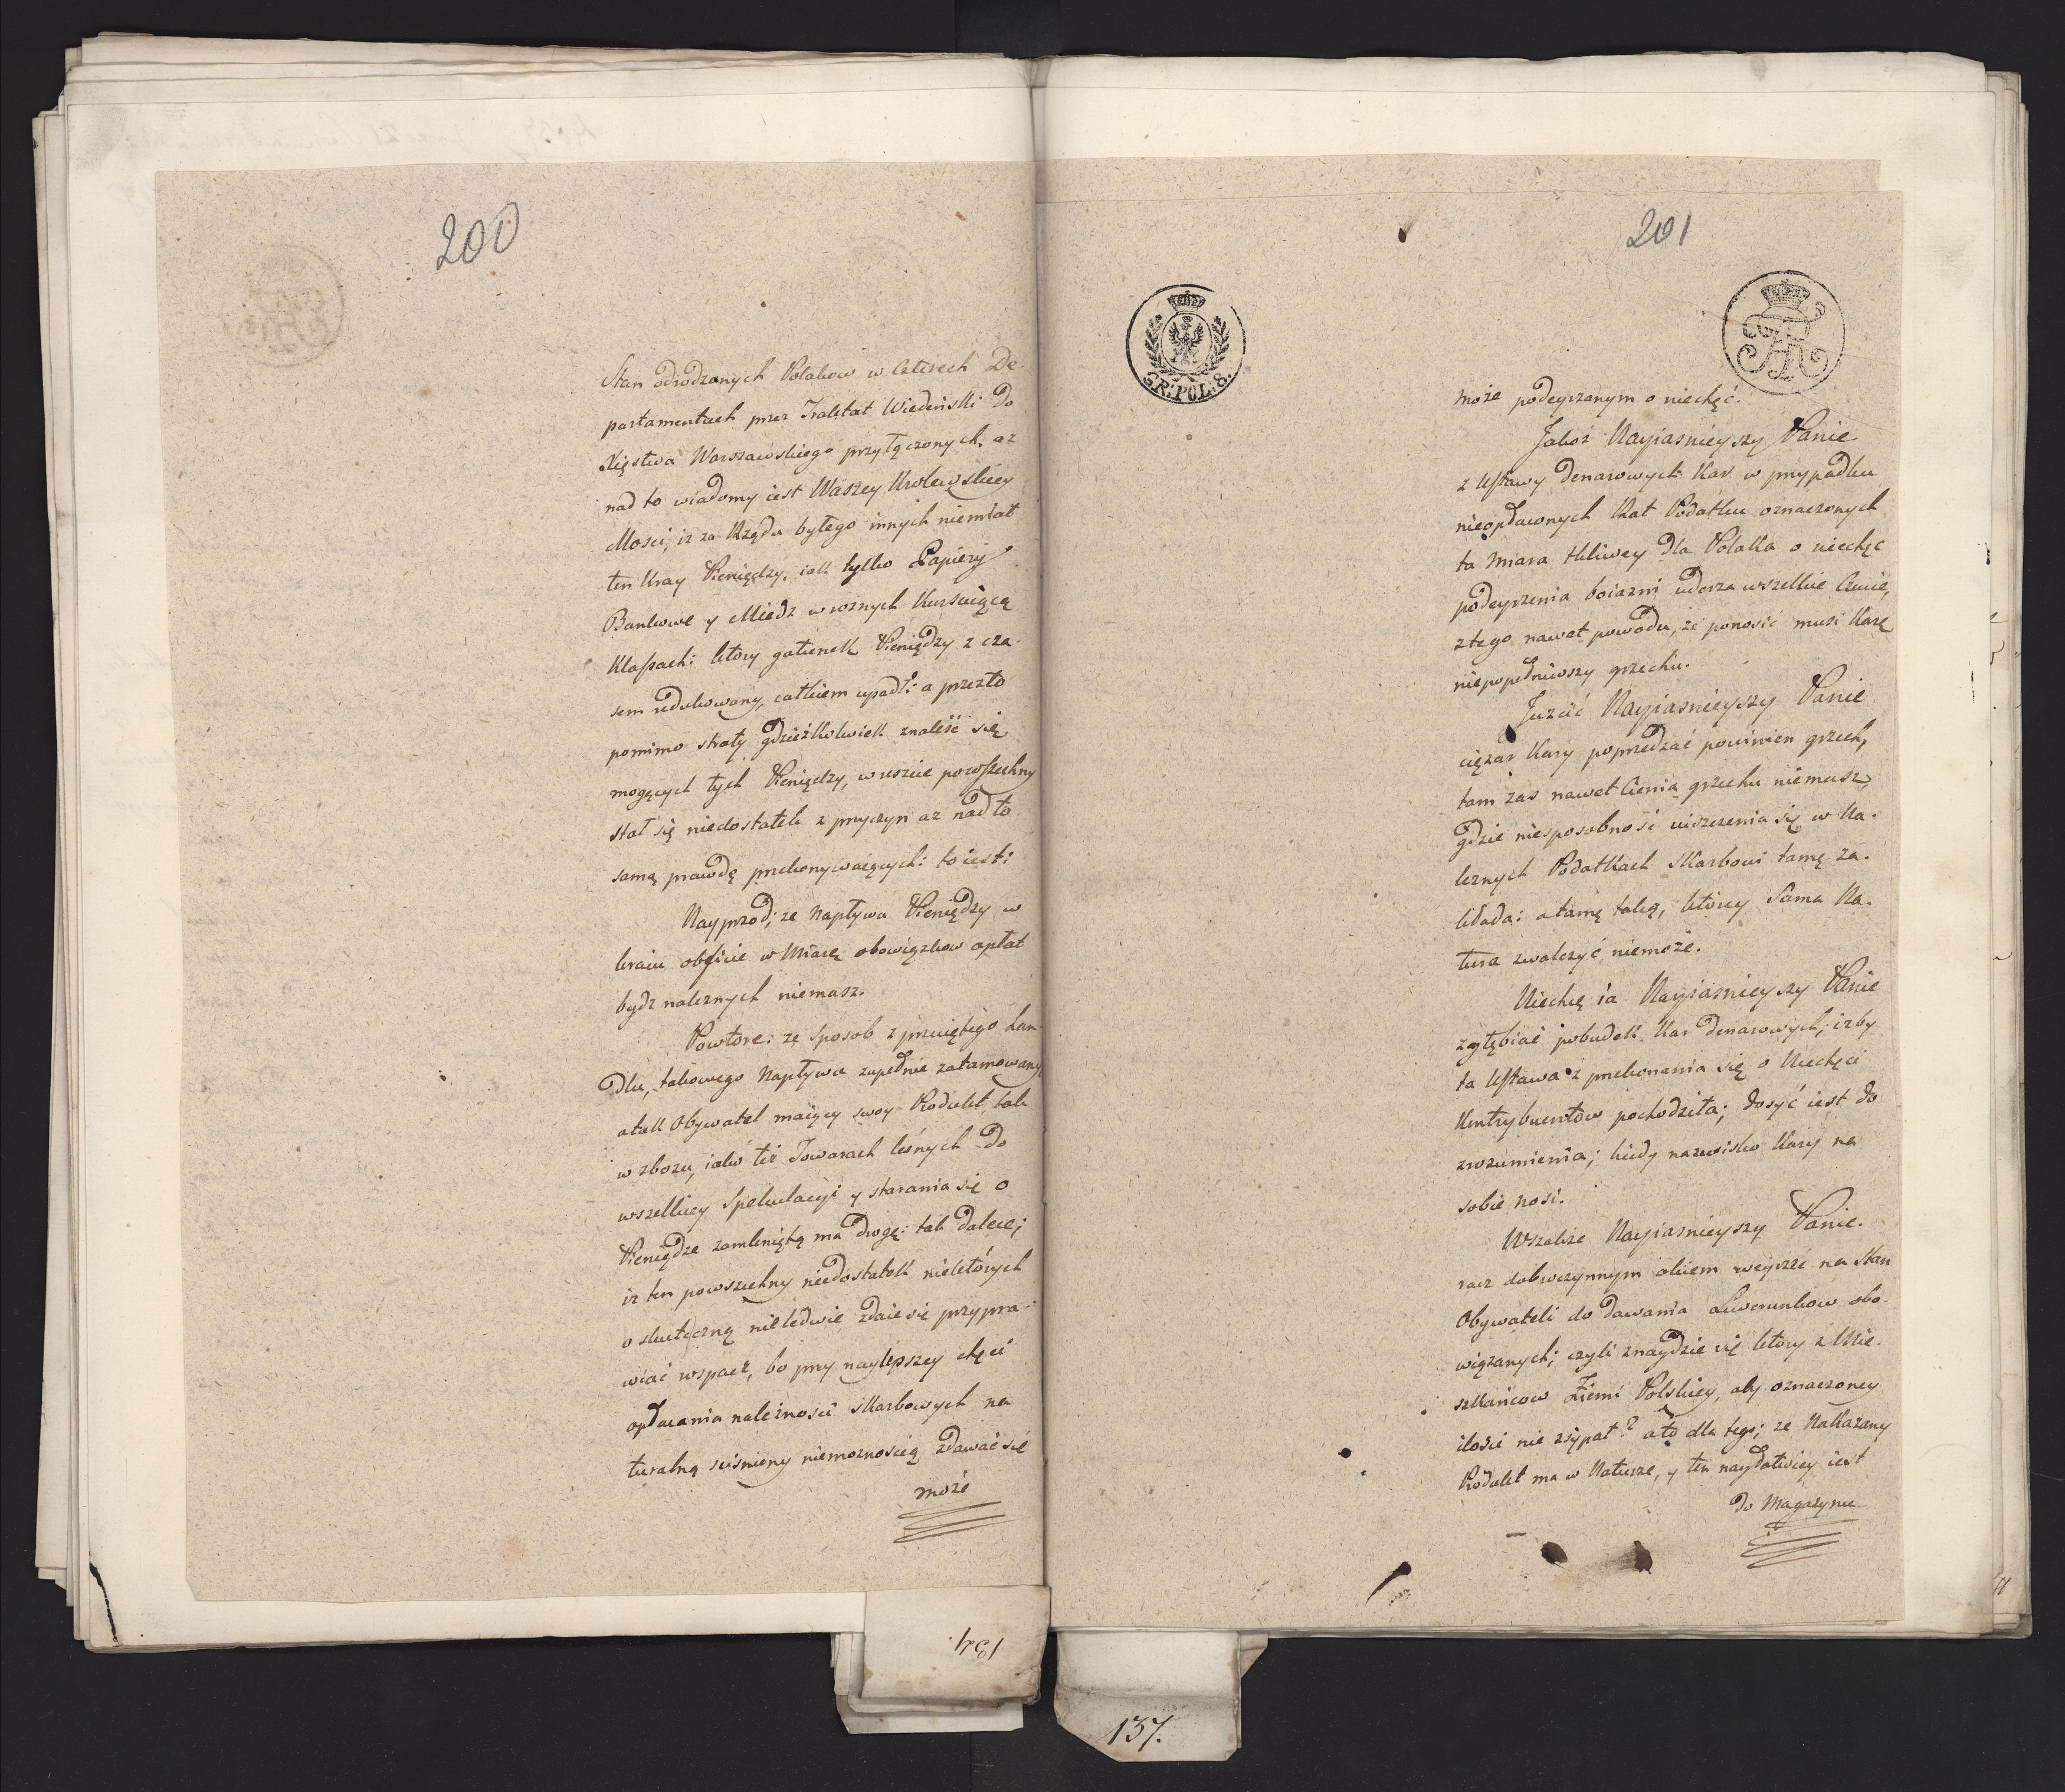 200
Stan odrodzonych Polakow w Czterech De-
partamentach przez Traktat Wiedeński do
Xięstwa Warszawskiego przyłączonych, az
nad to wiadomy iest Waszey Krolewskiey
Mosci, iz za Rządu byłego innych niemiał
ten Kray Pieniędzy, iak tylko Papiery
Bankowe y Miedz w roznych Kursuiącą
Klassach: ktory gatunek Pieniędzy z cza-
sem redukowany, całkiem upadł: a przezto
pomimo straty gdzieżkolwiek znaleść się
mogących tych Pieniędzy, wreszcie powszechny
stał się niedostatek z przyczyn az nad to
samą prawdę przekonywaiących: to iest:
Nayprzod; ze Napływu Pieniędzy w
kraiu obficie w Miarę obowiązkow opłat
bydz naleznych niemasz.
Powtore: ze sposob z przeciętego han-
dlu, takowego Napływu zupełnie zatamowany,
a tak Obywatel maiący swoy Produkt tak
w zbozu, iako też Towarach leśnych do
wszelkiey Spekulacyi y starania się o
Pieniądze zamkniętą ma drogę: tak dalece;
iz ten powszechny niedostatek niektórych
o skuteczną nieledwie zdaie się przypra-
wiać rospacz, bo przy naylepszey chęci
opłacania należności skarbowych na
turalną scisniony niemoznoscią zdawać się
może
134.
201
GR: POL: 8.
może podeyrzanym o niechęć.
Jakoż Nayiasnieyszy Panie
z Ustawy denarowych Kar w przypadku
nieopłaconych Rat Podatku oznaczonych
ta Miara tkliwey dla Polaka o niechęc
podeyrzenia boiazni uderza wszelkie Czucie,
z tego nawet powodu, że ponosić musi Karę
niepopełniwszy grzechu.
Juzcić Nayiasnieyszy Panie
cięzar Kary poprzedzać powinien grzech,
tam zas nawet Cienia grzechu niemasz,
gdzie niesposobność uiszczenia się w Na-
leznych Podatkach skarbowi tamę za-
kłada: a tamę taką, ktorey Sama Na-
tura zwalczyć niemoże.
Niechcę ia Nayiasnieyszy Panie
zgłębiać pobudek Kar denarowych, izby
ta Ustawa z przekonania się o Niechęci
Kontrybuentow pochodziła; dosyć iest do
zrozumienia; kiedy nazwisko Kary na
sobie nosi.
Wszakze Nayiasnieyszy Panie.
racz dobroczynnym okiem weyrzeć na stan
Obywateli do dawania Liwerunkow obo-
wiązanych; czyli znaydzie się ktory z Mie-
szkańcow Ziemi Polskiey, aby oznaczoney
ilości nie zsypał? a to dla tego; ze Nakazany
Produkt ma w Naturze, y ten nayłatwiey iest
do Magazynu
137.